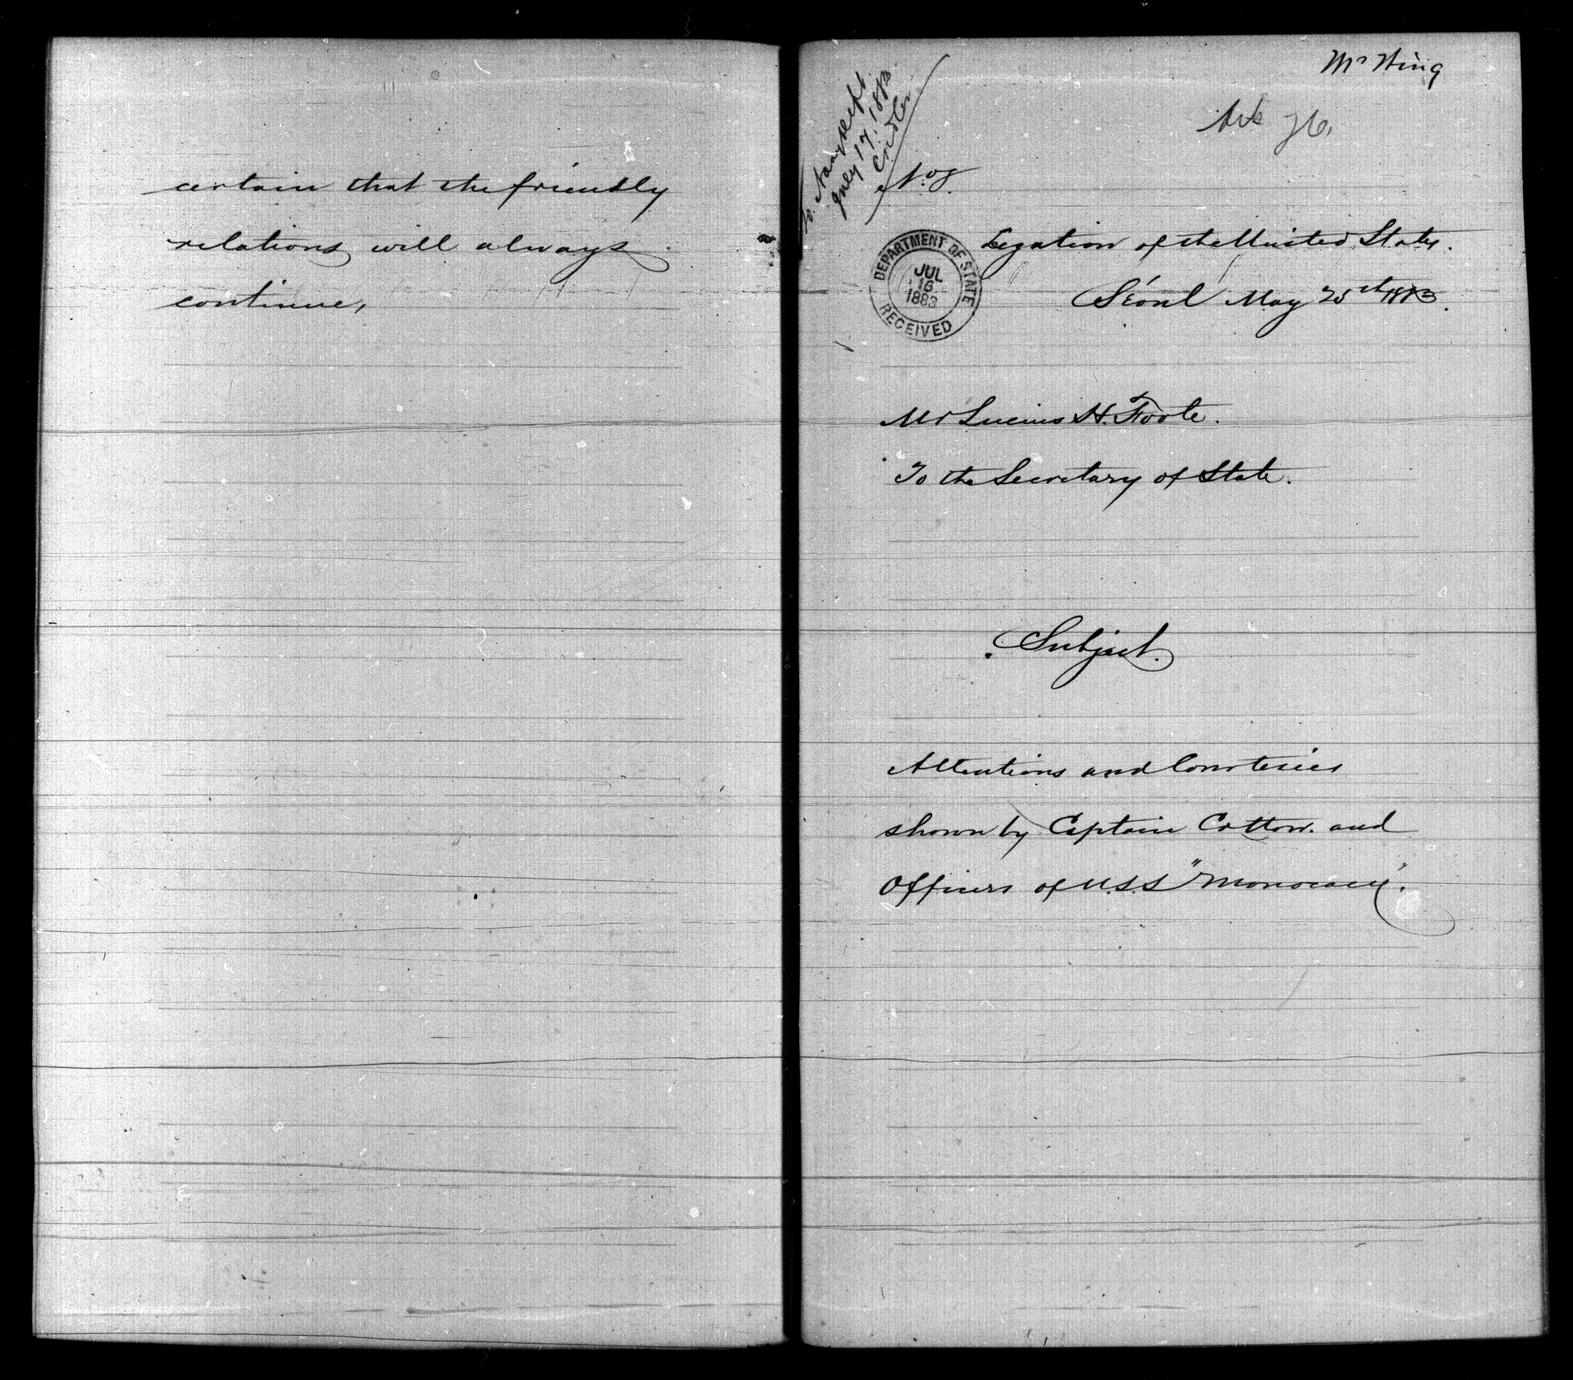 certain that the friendly
relations will always
continue,
Mr Hing
Ack
to Navy Dept.
July 17. 1883
Cridler
No 8.
DEPARTMENT OF STATE
JUL
16
1883
RECEIVED
Legation of the United States.
Séoul May 25th 1883.
Mr Lucius H. Foote.
To the Secretary of State.
Subject.
Attentions and Courtesies
shown by Captain Cotton. and
Officers of U.S.S "Monocacy".